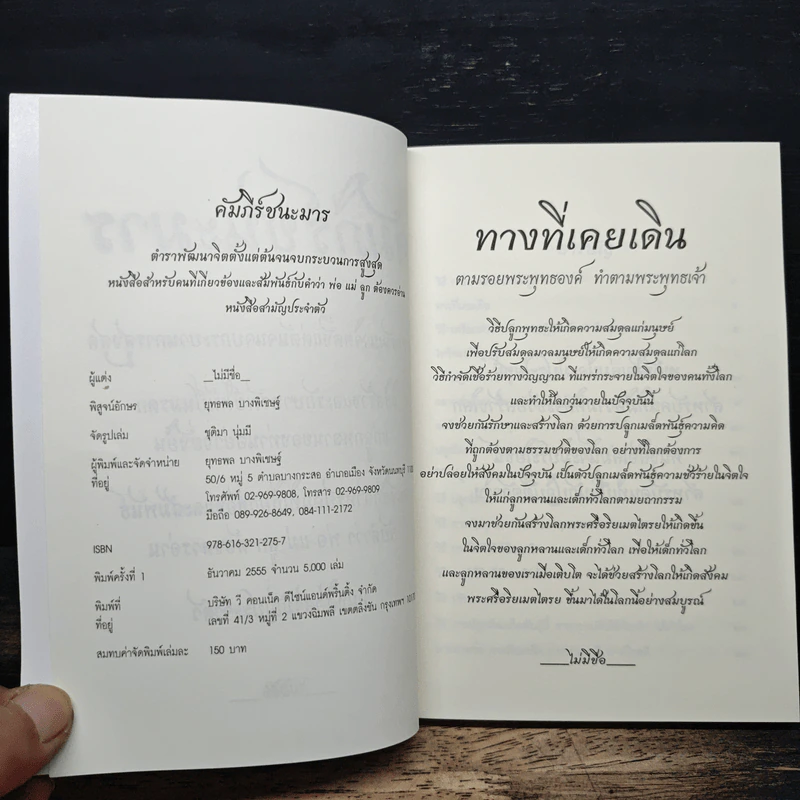 คัมภีร์ชนะมาร
ตำราพัฒนาจิตตั้งแต่ต้นจนจบกระบวนการสูงสุด
หนังสือสำหรับคนที่เกี่ยวข้องและสัมพันธ์กับคำว่า พ่อ แม่ ลูก ต้องควรอ่าน
หนังสือสามัญประจำตัว
ผู้แต่ง __ไม่มีชื่อ__
พิสูจน์อักษร ยุทธพล บางพิเชษฐ์
จัดรูปเล่ม ชุติมา นุ่มมี
ผู้พิมพ์และจัดจำหน่าย ยุทธพล บางพิเชษฐ์
ที่อยู่ 50/6 หมู่ 5 ตำบลบางกระสอ อำเภอเมือง จังหวัดนนทบุรี
โทรศัพท์ 02-969-9808, โทรสาร 02-969-9809
มือถือ 089-926-8649, 084-111-2172
ISBN 978-616-321-275-7
พิมพ์ครั้งที่ 1 ธันวาคม 2555 จำนวน 5,000 เล่ม
พิมพ์ที่ บริษัท วี คอนเน็ค ดีไซน์แอนด์พริ้นติ้ง จำกัด
ที่อยู่ เลขที่ 41/3 หมู่ที่ 2 แขวงฉิมพลี เขตตลิ่งชัน กรุงเทพฯ
สมทบค่าจัดพิมพ์เล่มละ 150 บาท
ทางที่เคยเดิน
ตามรอยพระพุทธองค์ ทำตามพระพุทธเจ้า
วิธีปลูกพุทธะให้เกิดความสมดุลแก่มนุษย์
เพื่อปรับสมดุลมวลมนุษย์ให้เกิดความสมดุลแก่โลก
วิธีกำจัดเชื้อร้ายทางวิญญาณ ที่แพร่กระจายในจิตใจของคนทั้งโลก
และทำให้โลกวุ่นวายในปัจจุบันนี้
จงช่วยกันรักษาและสร้างโลก ด้วยการปลูกเมล็ดพันธุ์ความคิด
ที่ถูกต้องตามธรรมชาติของโลก อย่างที่โลกต้องการ
อย่าปล่อยให้สังคมในปัจจุบัน เป็นตัวปลูกเมล็ดพันธุ์ความชั่วร้ายในจิตใจ
ให้แก่ลูกหลานและเด็กทั่วโลกตามยถากรรม
จงมาช่วยกันสร้างโลกพระศรีอริยเมตไตรยให้เกิดขึ้น
ในจิตใจของลูกหลานและเด็กทั่วโลก เพื่อให้เด็กทั่วโลก
และลูกหลานของเราเมื่อเติบโต จะได้ช่วยสร้างโลกให้เกิดสังคม
พระศรีอริยเมตไตรย ขึ้นมาได้ในโลกนี้อย่างสมบูรณ์
___ไม่มีชื่อ___